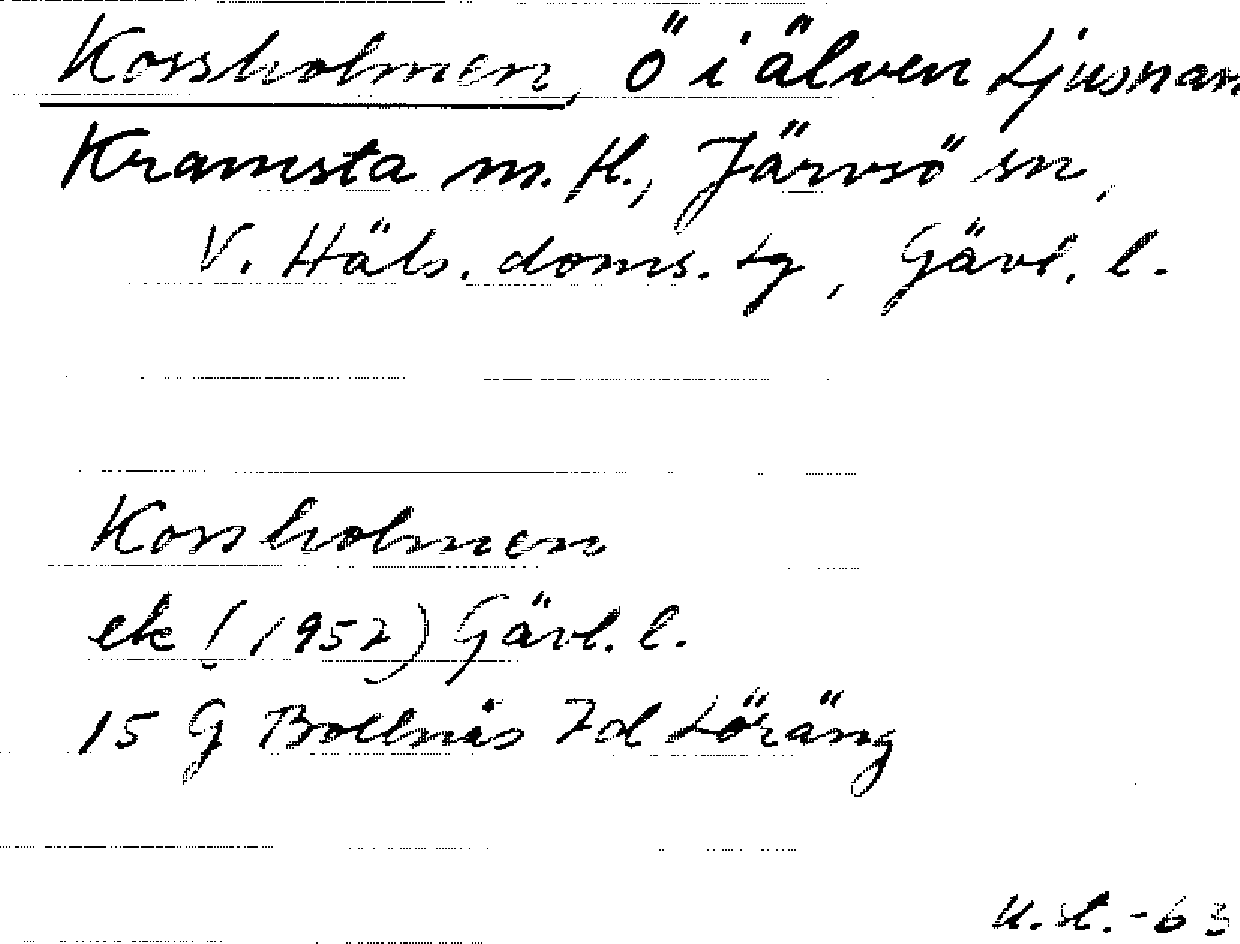 Korsholmen, ö i älven Ljusnan
Kramsta m. fl., Järvsö sn,
V. Häls. doms. tg, Gävl. l.
Korsholmen
ek (1952) Gävl. l.
15 G Bollnäs 7d Löräng
-63